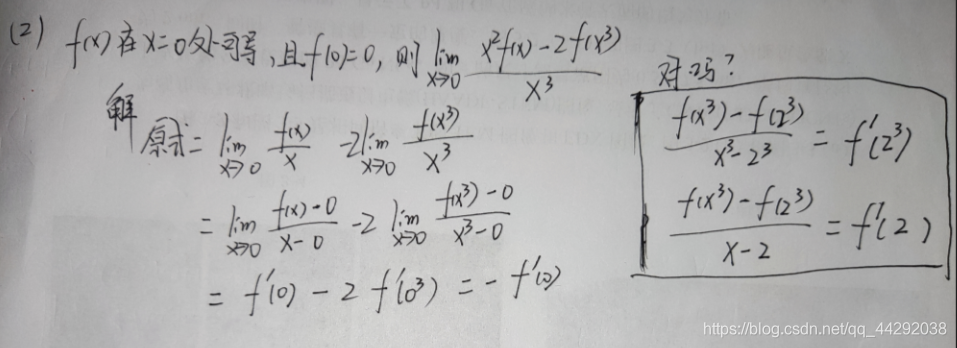 (2) f(x) 在 x=0 处可导, 且 f(0)=0, 则 lim x→0 (x²f(x) - 2f(x³)) / x³
解 原式 = lim x→0 f(x)/x - 2 lim x→0 f(x³)/x³
= lim x→0 (f(x)-0)/(x-0) - 2 lim x→0 (f(x³)-0)/(x³-0)
= f'(0) - 2f'(0³) = -f'(0)
对吗?
(f(x³)-f(2³))/(x³-2³) = f'(2³)
(f(x³)-f(2³))/(x-2) = f'(2)
https://blog.csdn.net/qq_44292038